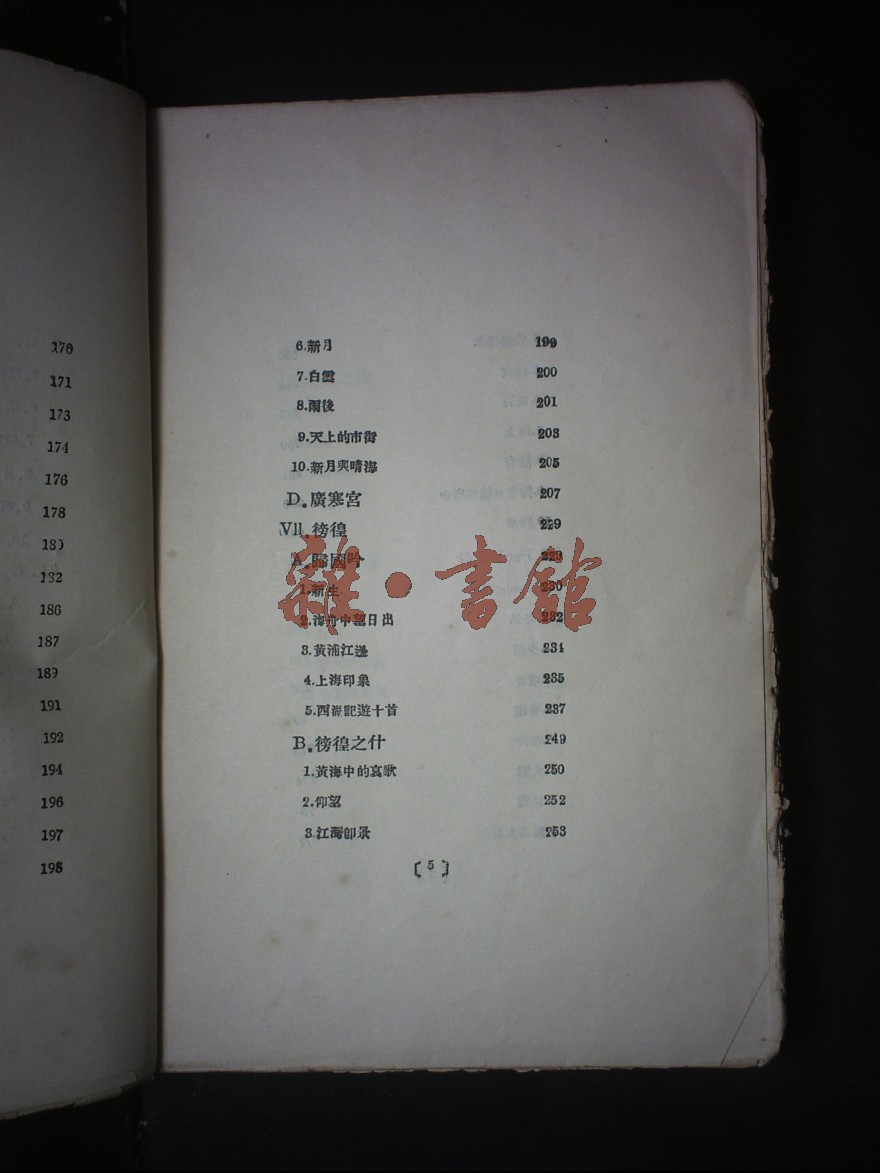 170
171
173
174
176
178
180
182
186
187
189
191
192
194
196
197
198
6.新月 199
7.白雲 200
8.雨後 201
9.天上的市街 203
10.新月與晴海 205
D.廣寒宮 207
VII.徬徨 229
A.歸國吟 229
1.新生 230
2.海舟中望日出 232
3.黃浦江邊 234
4.上海印象 235
5.西湖記遊十首 237
B.徬徨之什 249
1.黃海中的哀歌 250
2.仰望 252
3.江灣即景 253
〔5〕
雜·書館